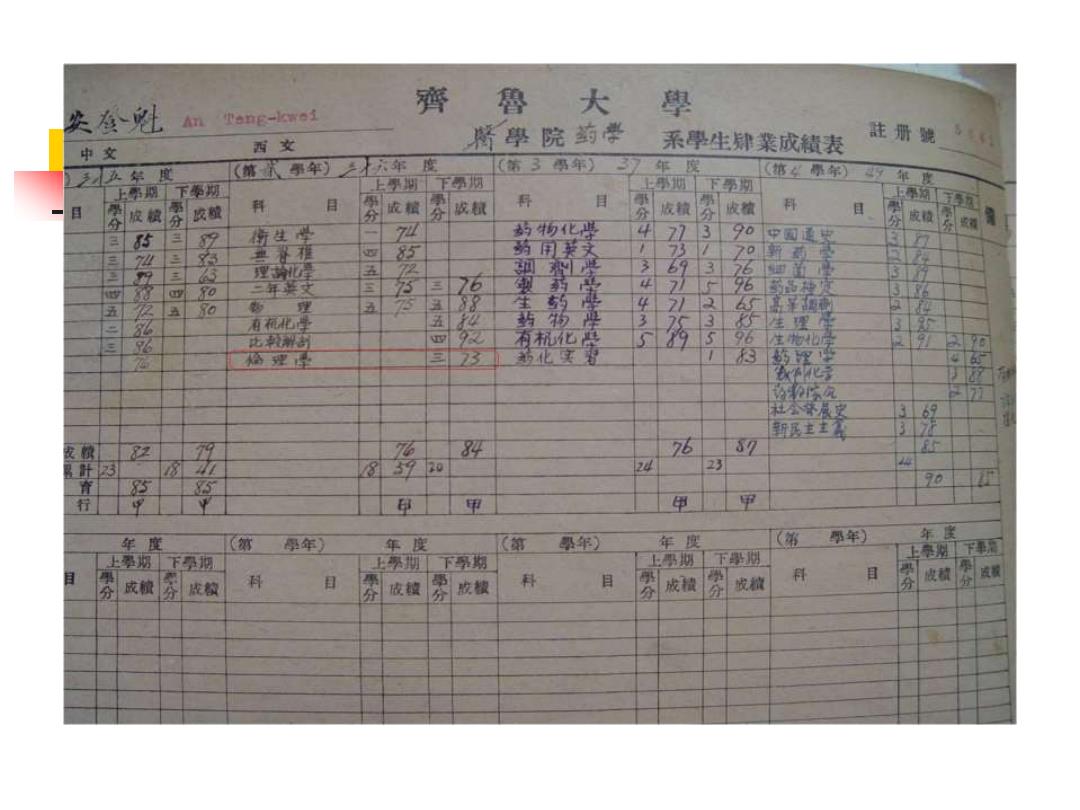 齊魯大學
安登魁 An Teng-kwei
中文 西文
醫學院药學系學生肄業成績表 註册號
三十五年度 (第貳學年) 三十六年度 (第3學年) 37年度 (第4學年) 年度
目 上學期 下學期 科目 上學期 下學期 科目 上學期 下學期 科目 上學期 下學期
學分 成績 學分 成績 學分 成績 學分 成績 學分 成績 學分 成績 學分 成績 學分 成績
三 85 三 89 衛生學 一 74 药物化學 4 77 3 90 中國通史 3 87
三 74 三 83 四 85 药用英文 1 73 1 70 新药學 2 84
三 89 三 63 理論化學 五 72 調劑學 3 69 3 76 細菌學 3 89
四 88 四 80 二年英文 三 75 三 76 製药學 4 71 5 96 3 86
五 72 五 80 物理 五 75 五 88 生药學 4 71 2 65 高等調劑 2 84
二 86 有机化學 五 84 药物學 3 75 3 85 生理學 3 95
三 96 比較解剖 四 92 有机化學 5 89 5 96 生物化學 2 91 2 90
76 倫理學 三 73 药化实習 1 83 药理學 4 65
3 88
2 77
社会發展史 3 69
新民主主義 3 78
成績 82 79 76 84 76 87 85
累計 23 18 41 18 59 20 24 23
育 85 85 90
行 甲 甲 甲 甲 甲 甲
年度 (第 學年) 年度 (第 學年) 年度 (第 學年) 年度
目 上學期 下學期 科目 上學期 下學期 科目 上學期 下學期 科目 上學期 下學期
學分 成績 學分 成績 學分 成績 學分 成績 學分 成績 學分 成績 學分 成績 學分 成績